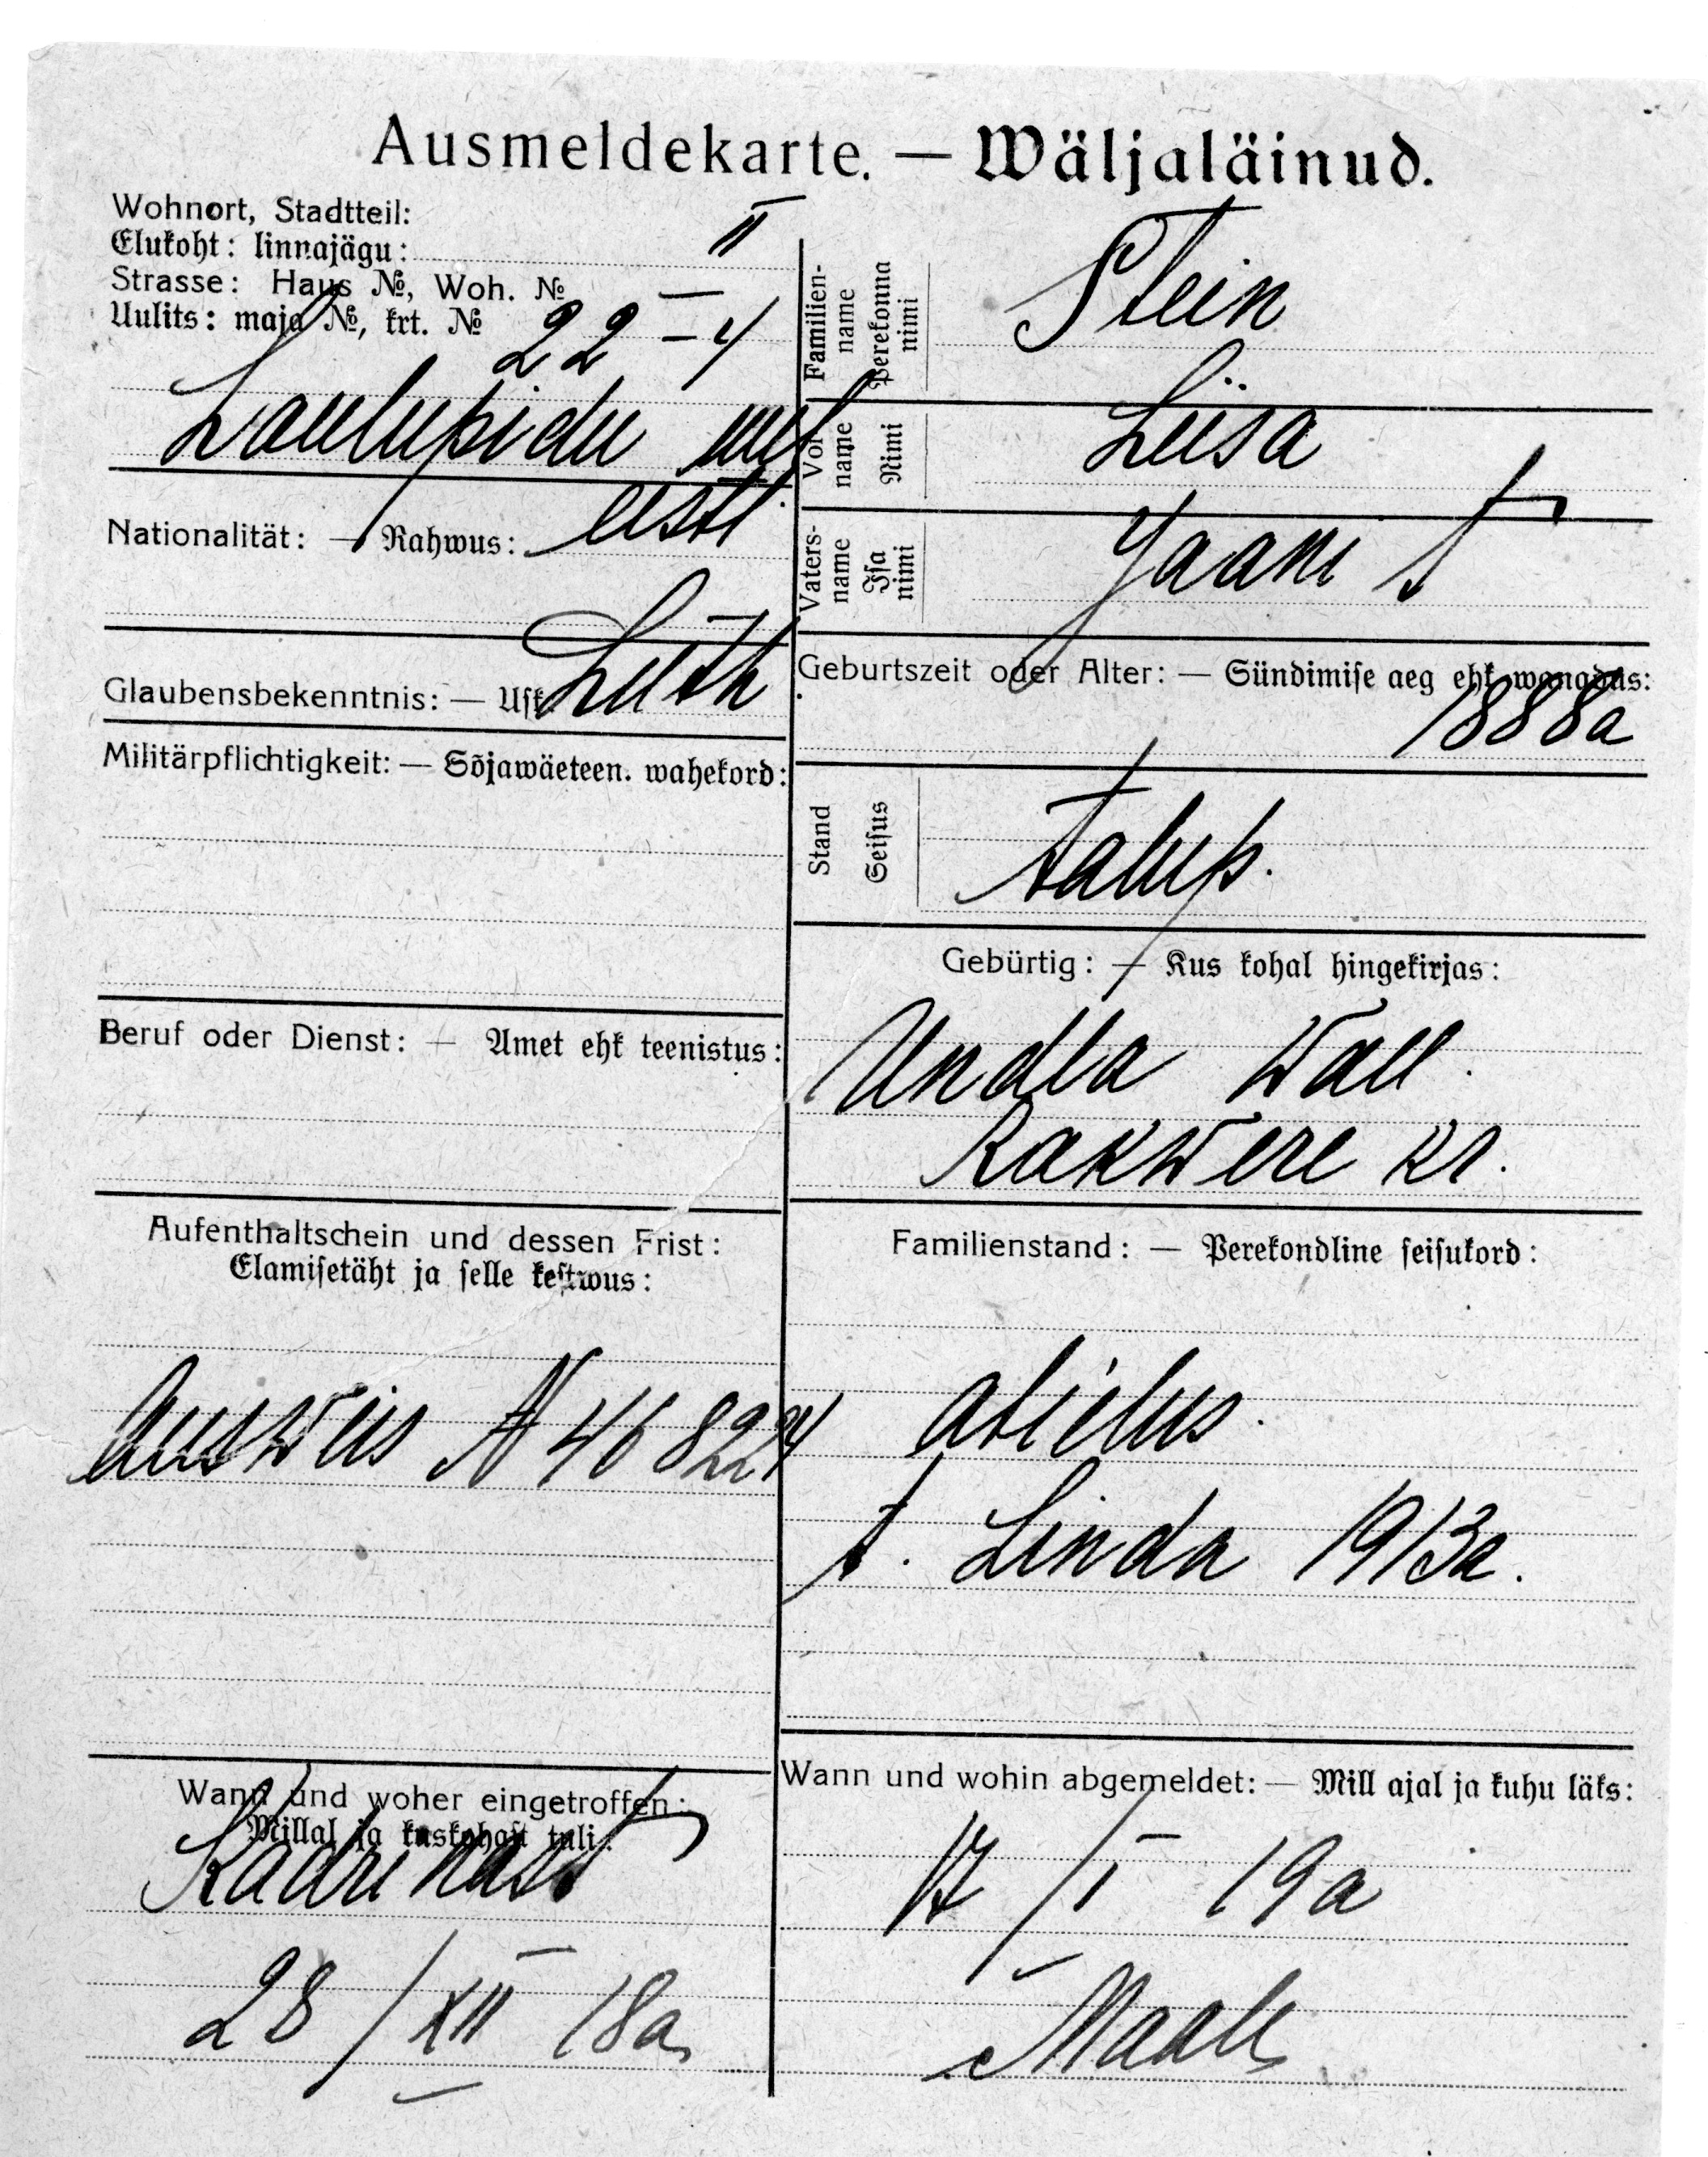 Ausmeldekarte. — Wäljaläinud.
Wohnort, Stadtteil:
Elukoht: linnajägu: II
Strasse: Haus №, Woh. №
Uulits: maja №, krt. № 22 – 4
Laulupidu uul
Nationalität: — Rahwus: eesti.
Glaubensbekenntnis: — Usk Luth
Militärpflichtigkeit: — Sõjawäeteen. wahekord:
Beruf oder Dienst: — Amet ehk teenistus:
Aufenthaltschein und dessen Frist:
Elamisetäht ja selle kestwus:
Ausweis N 468224
Wann und woher eingetroffen:
Millal ja kuskohast tuli:
Kadrinast
28 / XII 18a
Familien-
name
Perekonna
nimi
Stein
Vor
name
Nimi
Liisa
Vaters-
name
Isa
nimi
Jaani t
Geburtszeit oder Alter: — Sündimise aeg ehk wanadus:
1888a
Stand
Seisus
talup.
Gebürtig: — Kus kohal hingekirjas:
Undla wall.
Rakwere kr.
Familienstand: — Perekondline seisukord:
abielus.
t. Linda 1913a.
Wann und wohin abgemeldet: — Mill ajal ja kuhu läks:
17 / I 19a
Maale